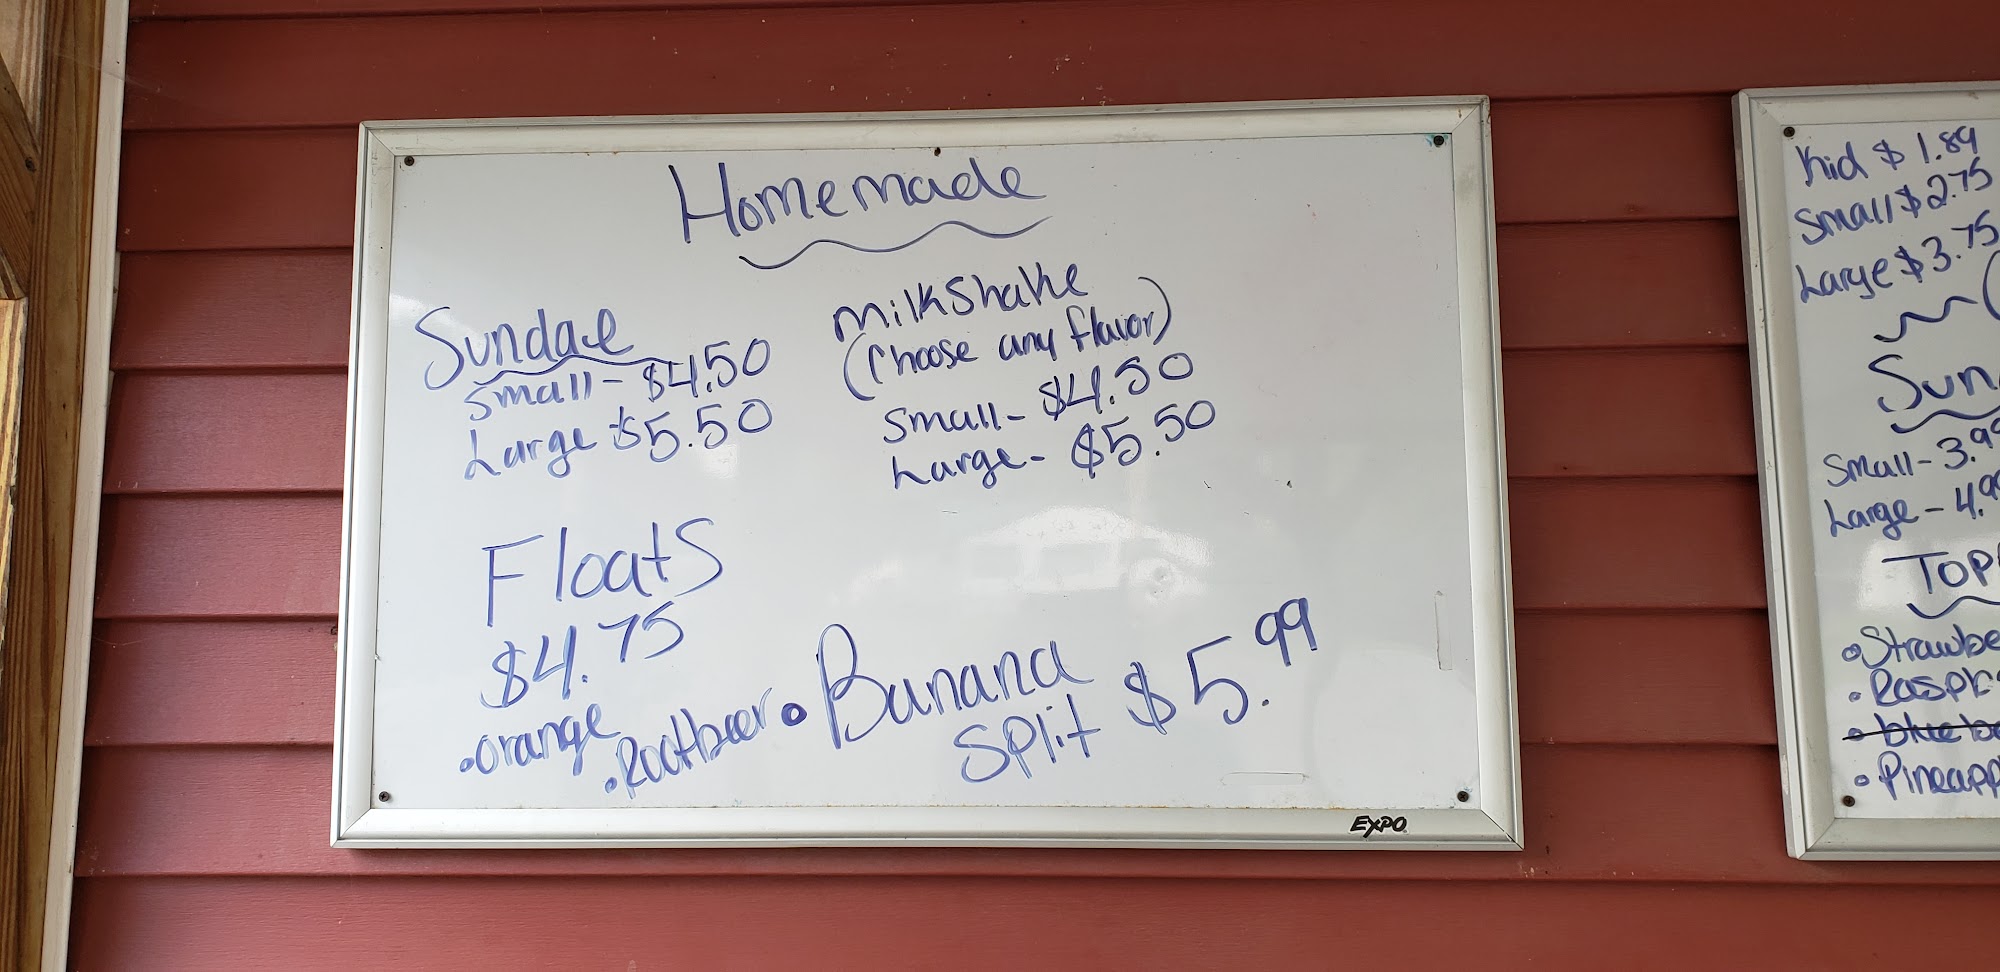 Homemade
Sundae
Small - $4.50
Large $5.50
Milkshake
(Choose any flavor)
Small - $4.50
Large - $5.50
Floats
$4.75
• orange
• Rootbeer
• Banana
Split $5.99
EXPO
Kid $1.89
Small $2.75
Large $3.75
Sun
Small - 3.99
Large - 4.99
TOP
• Strawbe
• Raspb
• blue be
• Pineapp